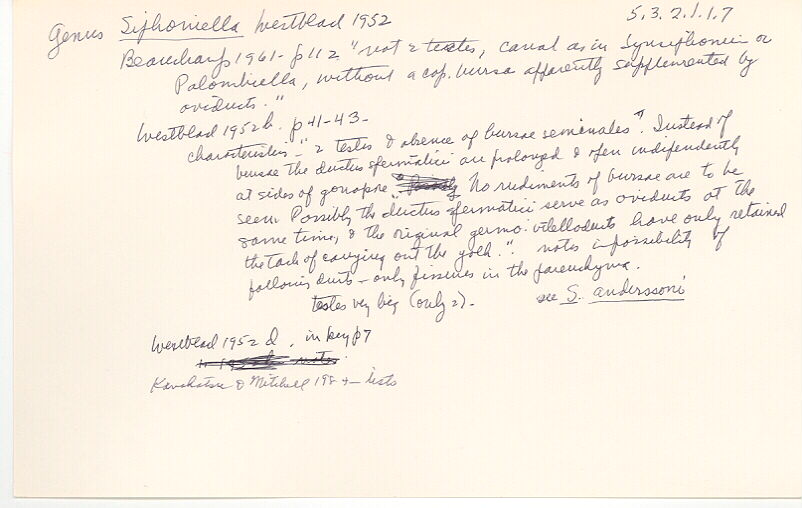 Genus Siphoniella Westblad 1952 5.3.2.1.1.7
Beauchamp 1961 - p112 "not 2 testes, canal as in Synsiphonium or
Palombiella, without a cop. bursa apparently supplemented by
oviducts."
Westblad 1952b. p41-43-
characteristics - "2 testes & absence of bursae seminales". Instead of
bursae the ductus spermatici are prolonged & open independently
at sides of gonopore. No rudiments of bursae are to be
seen. Possibly the ductus spermatici serve as oviducts at the
same time, & the original germo-vitelloducts have only retained
the task of carrying out the yolk." notes impossibility of
following ducts - only fissures in the parenchyma.
testes very big (only 2). see S. anderssoni
Westblad 1952 d, in key p7
& Mitchell 198 - lists